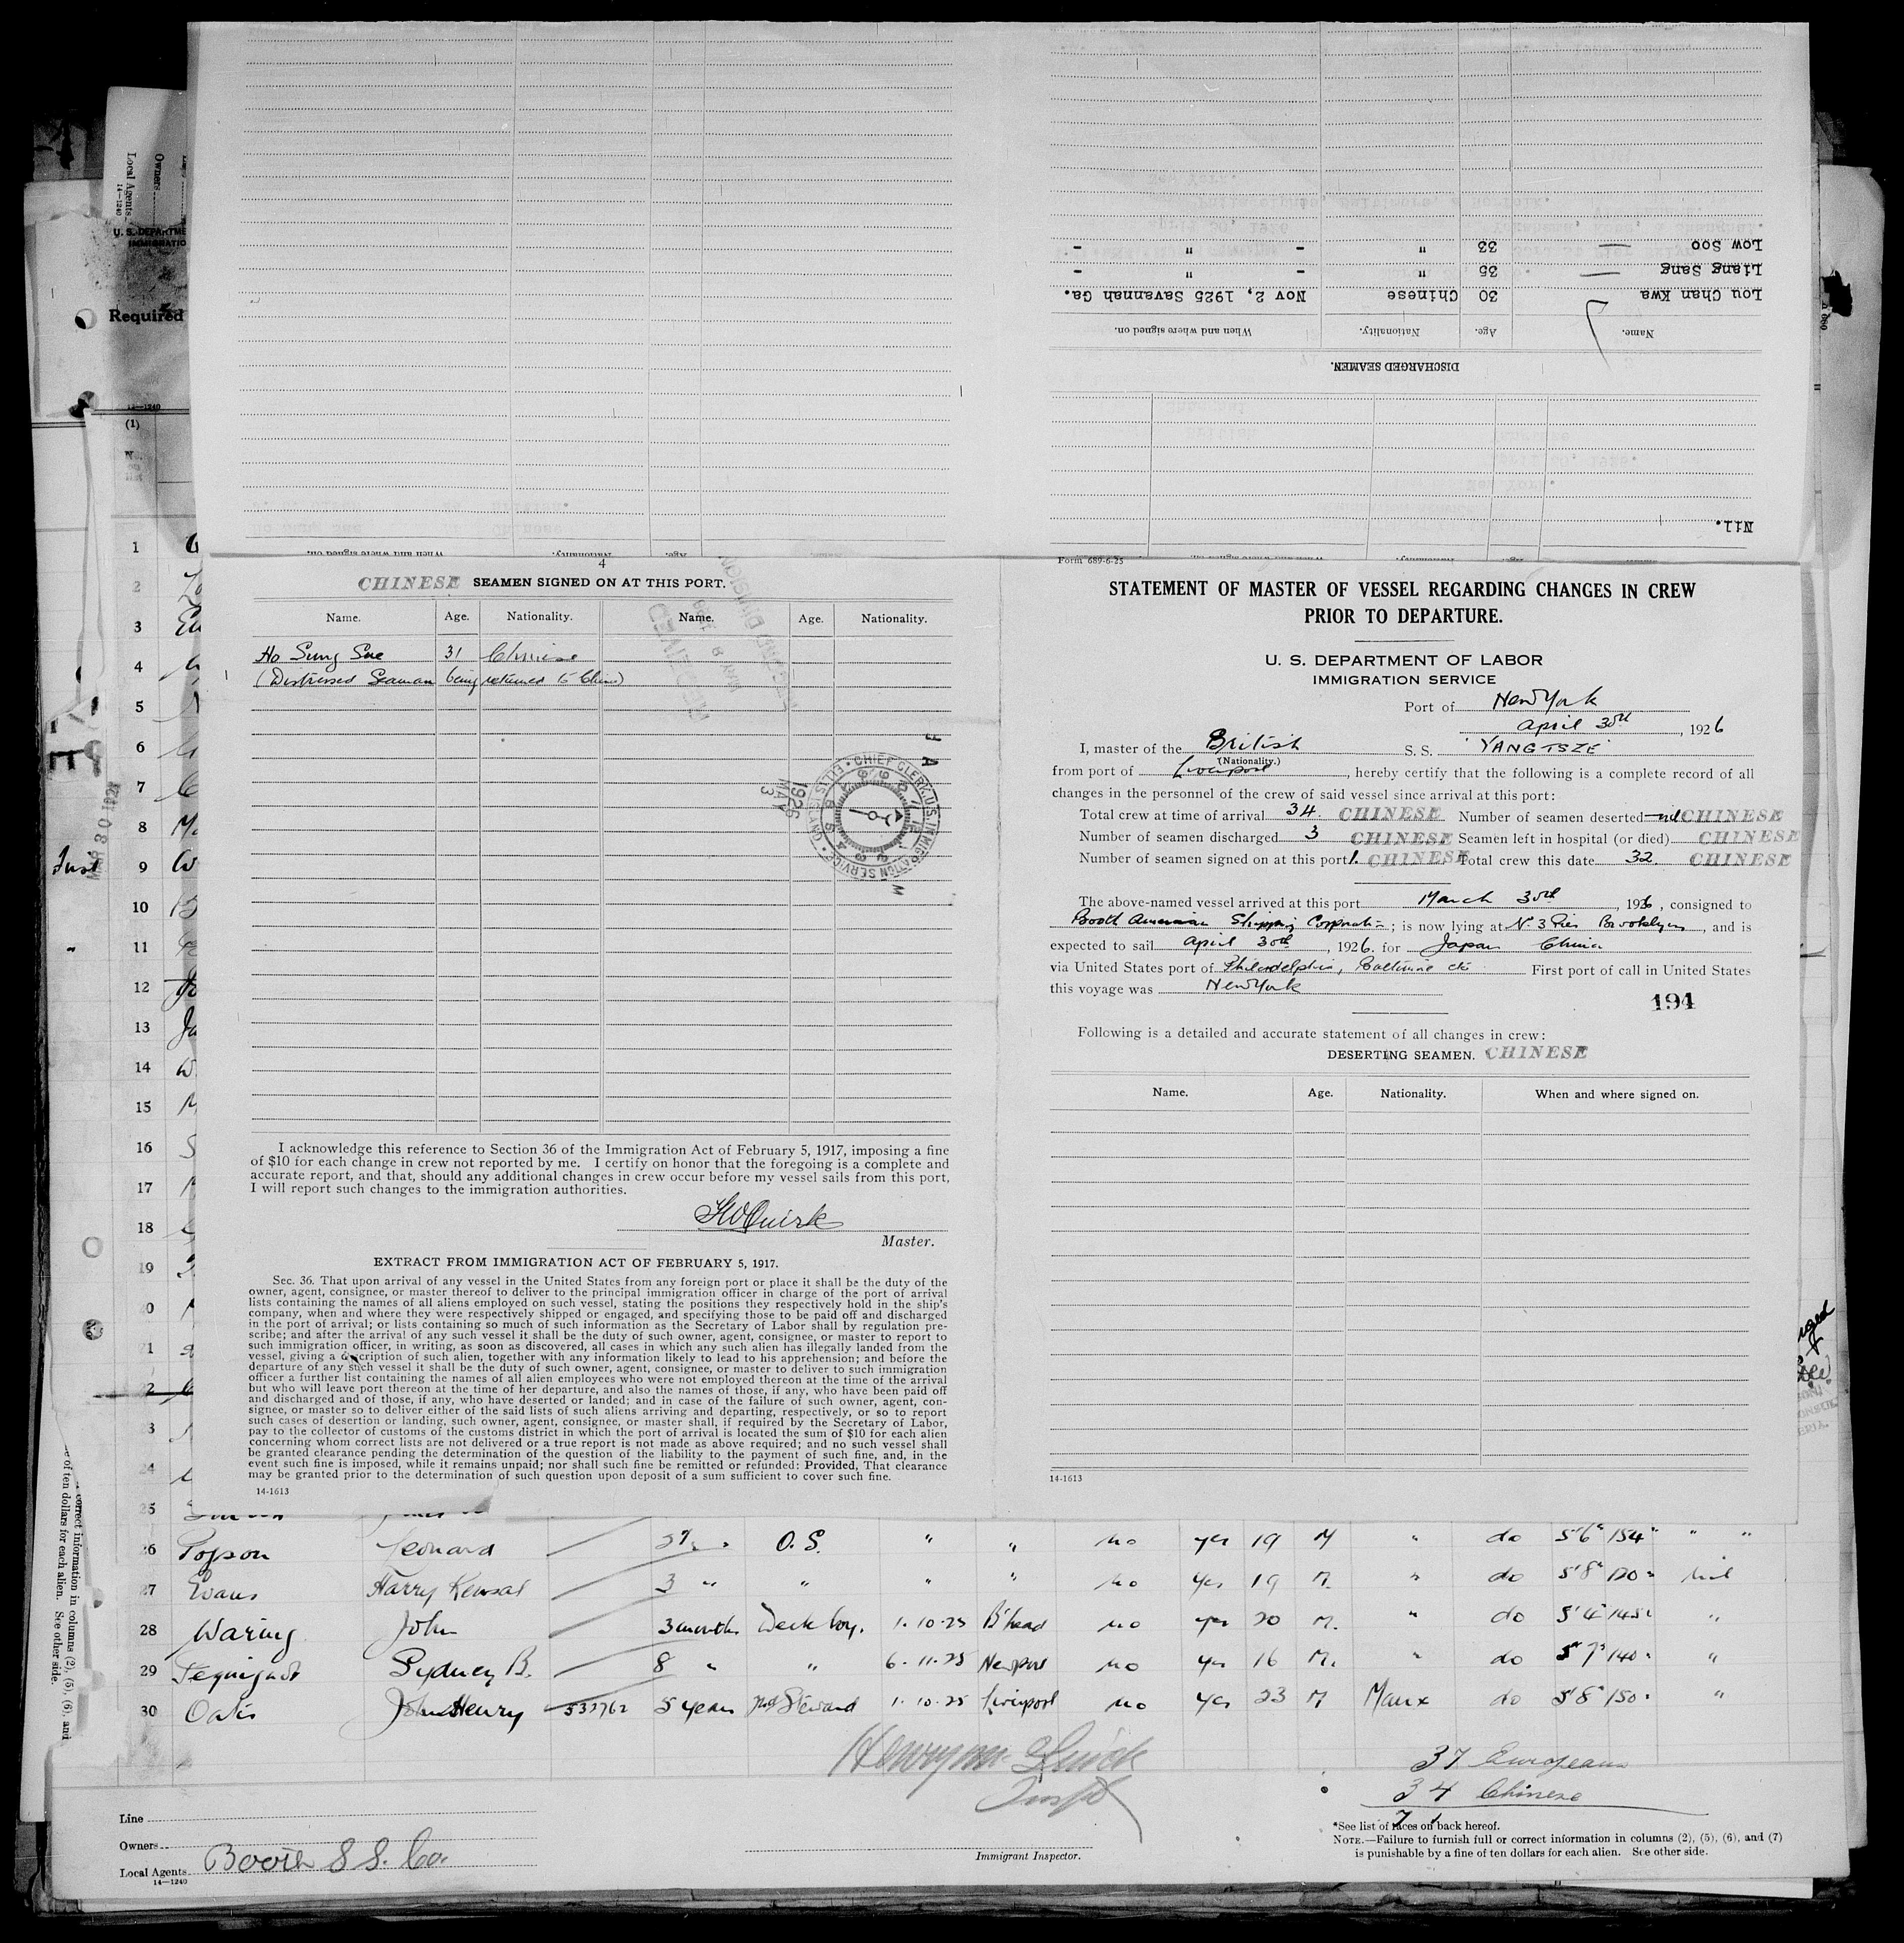 Low Soo 33 " - " -
Liang Sang 35 " - " -
Lou Chan Kwa 30 Chinese Nov 2, 1925 Savannah Ga.
Name. Age. Nationality. When and where signed on.
DISCHARGED SEAMEN.
Nil.
Local Agents
Owners
14—1240
U. S. DEPARTME
IMMIGRATIO
Required
14—1240
(1)
4
CHINESE SEAMEN SIGNED ON AT THIS PORT.
Name. Age. Nationality. Name. Age. Nationality.
Ho Sung Sue 31 Chinese
(Distressed Seaman being returned to China)
RECEIVED
MAY 3 1926
CHIEF CLERK, U.S. IMMIGRATION SERVICE · ELLIS ISLAND
I acknowledge this reference to Section 36 of the Immigration Act of February 5, 1917, imposing a fine
of $10 for each change in crew not reported by me. I certify on honor that the foregoing is a complete and
accurate report, and that, should any additional changes in crew occur before my vessel sails from this port,
I will report such changes to the immigration authorities.
Quirk
Master.
EXTRACT FROM IMMIGRATION ACT OF FEBRUARY 5, 1917.
Sec. 36. That upon arrival of any vessel in the United States from any foreign port or place it shall be the duty of the
owner, agent, consignee, or master thereof to deliver to the principal immigration officer in charge of the port of arrival
lists containing the names of all aliens employed on such vessel, stating the positions they respectively hold in the ship's
company, when and where they were respectively shipped or engaged, and specifying those to be paid off and discharged
in the port of arrival; or lists containing so much of such information as the Secretary of Labor shall by regulation pre-
scribe; and after the arrival of any such vessel it shall be the duty of such owner, agent, consignee, or master to report to
such immigration officer, in writing, as soon as discovered, all cases in which any such alien has illegally landed from the
vessel, giving a description of such alien, together with any information likely to lead to his apprehension; and before the
departure of any such vessel it shall be the duty of such owner, agent, consignee, or master to deliver to such immigration
officer a further list containing the names of all alien employees who were not employed thereon at the time of the arrival
but who will leave port thereon at the time of her departure, and also the names of those, if any, who have been paid off
and discharged and of those, if any, who have deserted or landed; and in case of the failure of such owner, agent, con-
signee, or master so to deliver either of the said lists of such aliens arriving and departing, respectively, or so to report
such cases of desertion or landing, such owner, agent, consignee, or master shall, if required by the Secretary of Labor,
pay to the collector of customs of the customs district in which the port of arrival is located the sum of $10 for each alien
concerning whom correct lists are not delivered or a true report is not made as above required; and no such vessel shall
be granted clearance pending the determination of the question of the liability to the payment of such fine, and, in the
event such fine is imposed, while it remains unpaid; nor shall such fine be remitted or refunded: Provided, That clearance
may be granted prior to the determination of such question upon deposit of a sum sufficient to cover such fine.
14-1613
Form 689-6-25
STATEMENT OF MASTER OF VESSEL REGARDING CHANGES IN CREW
PRIOR TO DEPARTURE.
U. S. DEPARTMENT OF LABOR
IMMIGRATION SERVICE
Port of New York
April 30th, 1926
I, master of the British S. S. 'YANGTSZE'
(Nationality.)
from port of Liverpool, hereby certify that the following is a complete record of all
changes in the personnel of the crew of said vessel since arrival at this port:
Total crew at time of arrival 34. CHINESE Number of seamen deserted nil CHINESE
Number of seamen discharged 3 CHINESE Seamen left in hospital (or died) CHINESE
Number of seamen signed on at this port 1. CHINESE Total crew this date 32. CHINESE
The above-named vessel arrived at this port March 30th, 1926, consigned to
Booth American Shipping Corporation; is now lying at No 3 Pier Brooklyn, and is
expected to sail April 30th, 1926. for Japan China
via United States port of Philadelphia, Baltimore etc First port of call in United States
this voyage was New York
194
Following is a detailed and accurate statement of all changes in crew:
DESERTING SEAMEN. CHINESE
Name. Age. Nationality. When and where signed on.
14-1613
1
2
3
4
5
6
7
8
9
10
11
12
13
14
15
16
17
18
19
24
25
26 Popson Leonard O.S. " " no yes 19 M " do 5'6" 154 " "
27 Evans Harry Kensal 3 " " " " no yes 19 M. " do 5'8" 120 nil
28 Waring John 3 months Deck boy. 1.10.25 B'head no yes 20 M. " do 5'4" 145 "
29 Sydney B. 8 " " 6.11.25 Newport no yes 16 M. " do 5'7" 140 "
30 Oates John Henry 533762 5 years Steward 1.10.25 Liverpool no yes 23 M Manx do 5'8" 150 "
37 Europeans
34 Chinese
71
Line
Owners
Local Agents Booth S S. Co.
14—1240
Immigrant Inspector.
*See list of races on back hereof.
NOTE.—Failure to furnish full or correct information in columns (2), (5), (6), and (7)
is punishable by a fine of ten dollars for each alien. See other side.